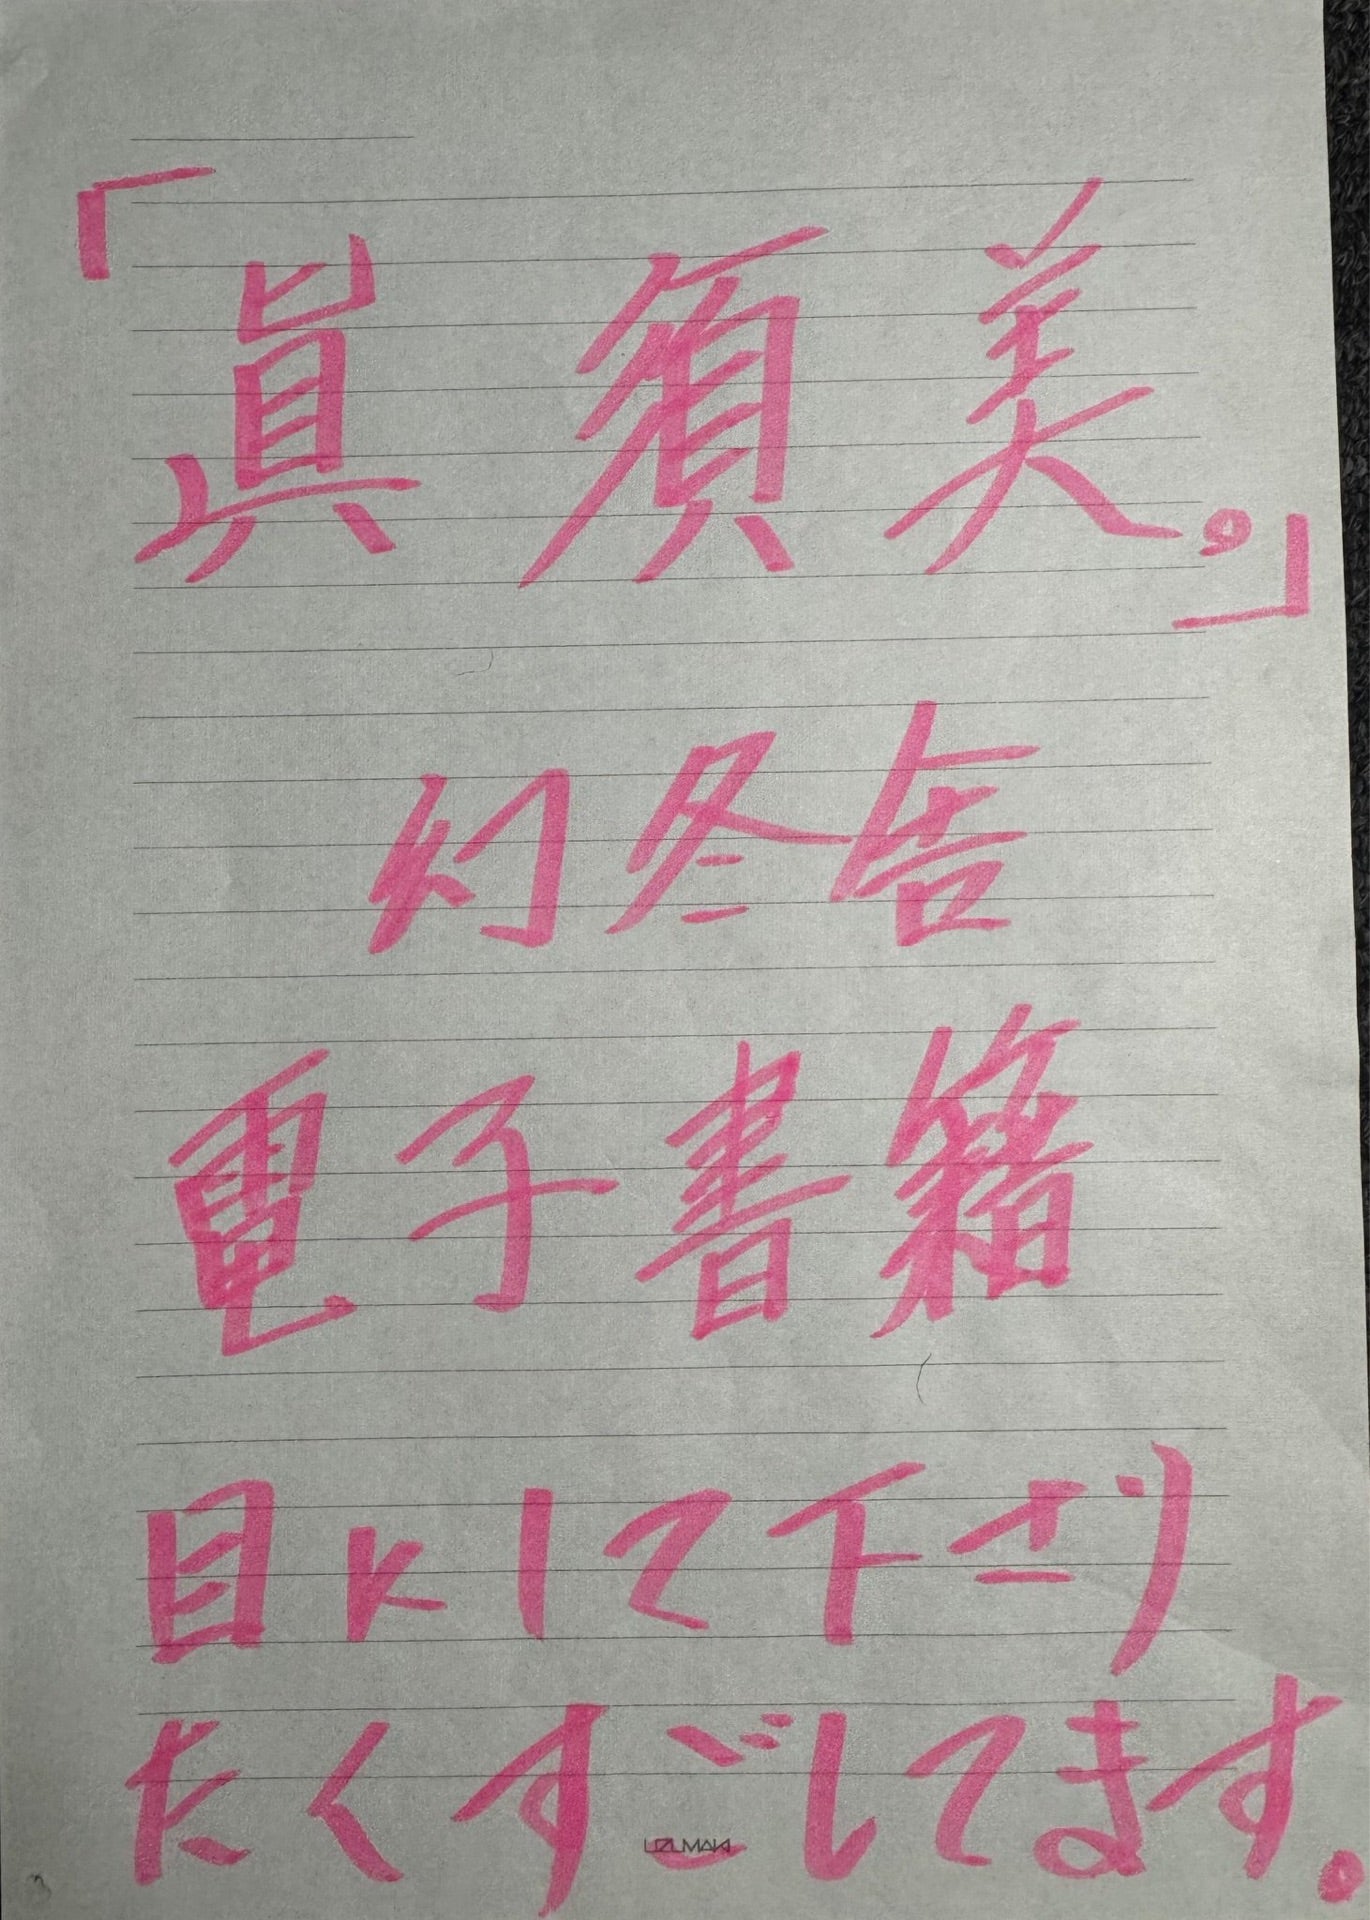 「眞須美。」
幻冬舎
電子書籍
目にして下さり
たくすごしてます。
UZUMAKI